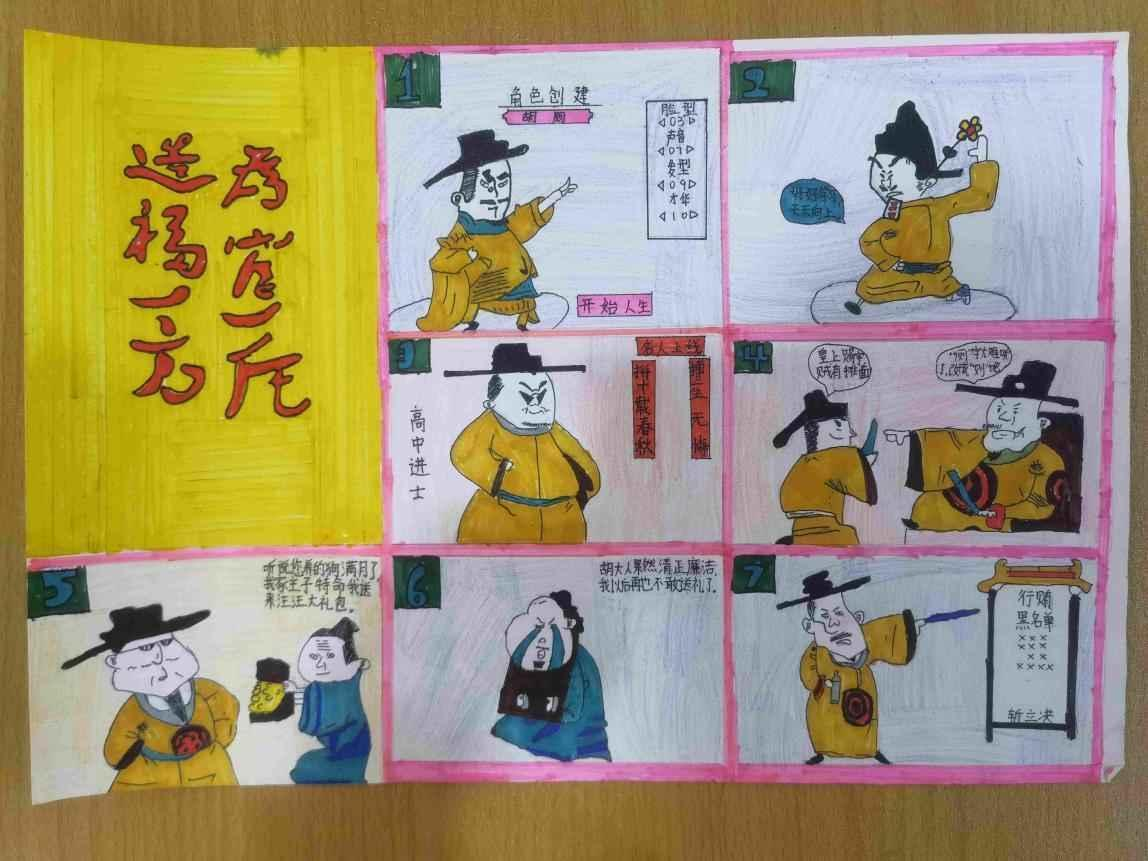 为官一任
造福一方
1
角色创建
胡厕
脸型
◁03▷
声音
◁07▷
发型
◁09▷
才华
◁10▷
开始人生
2
好好学习
天天向上
3
名人上线
搏一生无悔
拼十载春秋
高中进士
4
皇上赐字
贼有排面
"厕"字太难听
了,改成"则"吧
5
听说您养的狗满月了,
我家主子特命我送
来汪汪大礼包。
6
胡大人果然清正廉洁,
我以后再也不敢送礼了。
7
行贿
黑名单
×××
×××
×××
××××
斩立决